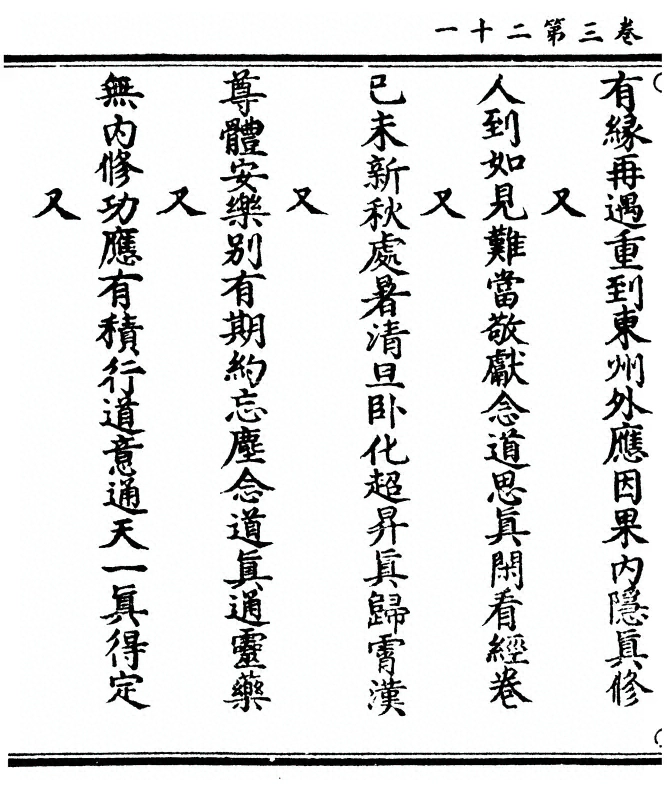 卷三第二十一
有緣再遇重到東州外應因果内隱眞修
又
人到如見難當敬獻念道思眞閑看經卷
又
已未新秋處暑清旦卧化超昇眞歸霄漢
又
尊體安樂别有期約忘塵念道眞通靈藥
又
無内修功應有積行道意通天一眞得定
又